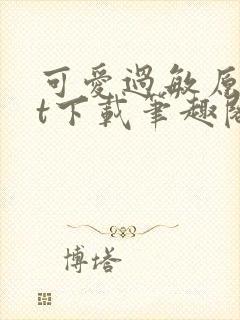 可爱過敏原
t下載筆趣閣
博塔